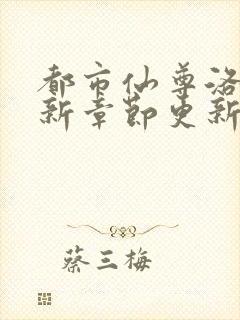 都市仙尊洛
新章节更新
蔡三梅